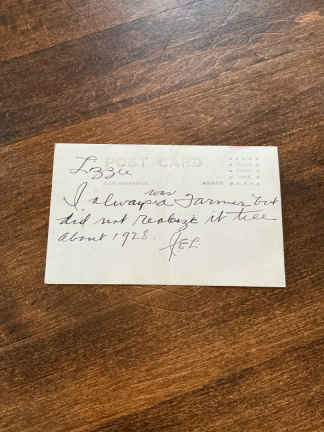 POST CARD
Lizzie
was
I always a Farmer but
did not realize it till
about 1928. JEL